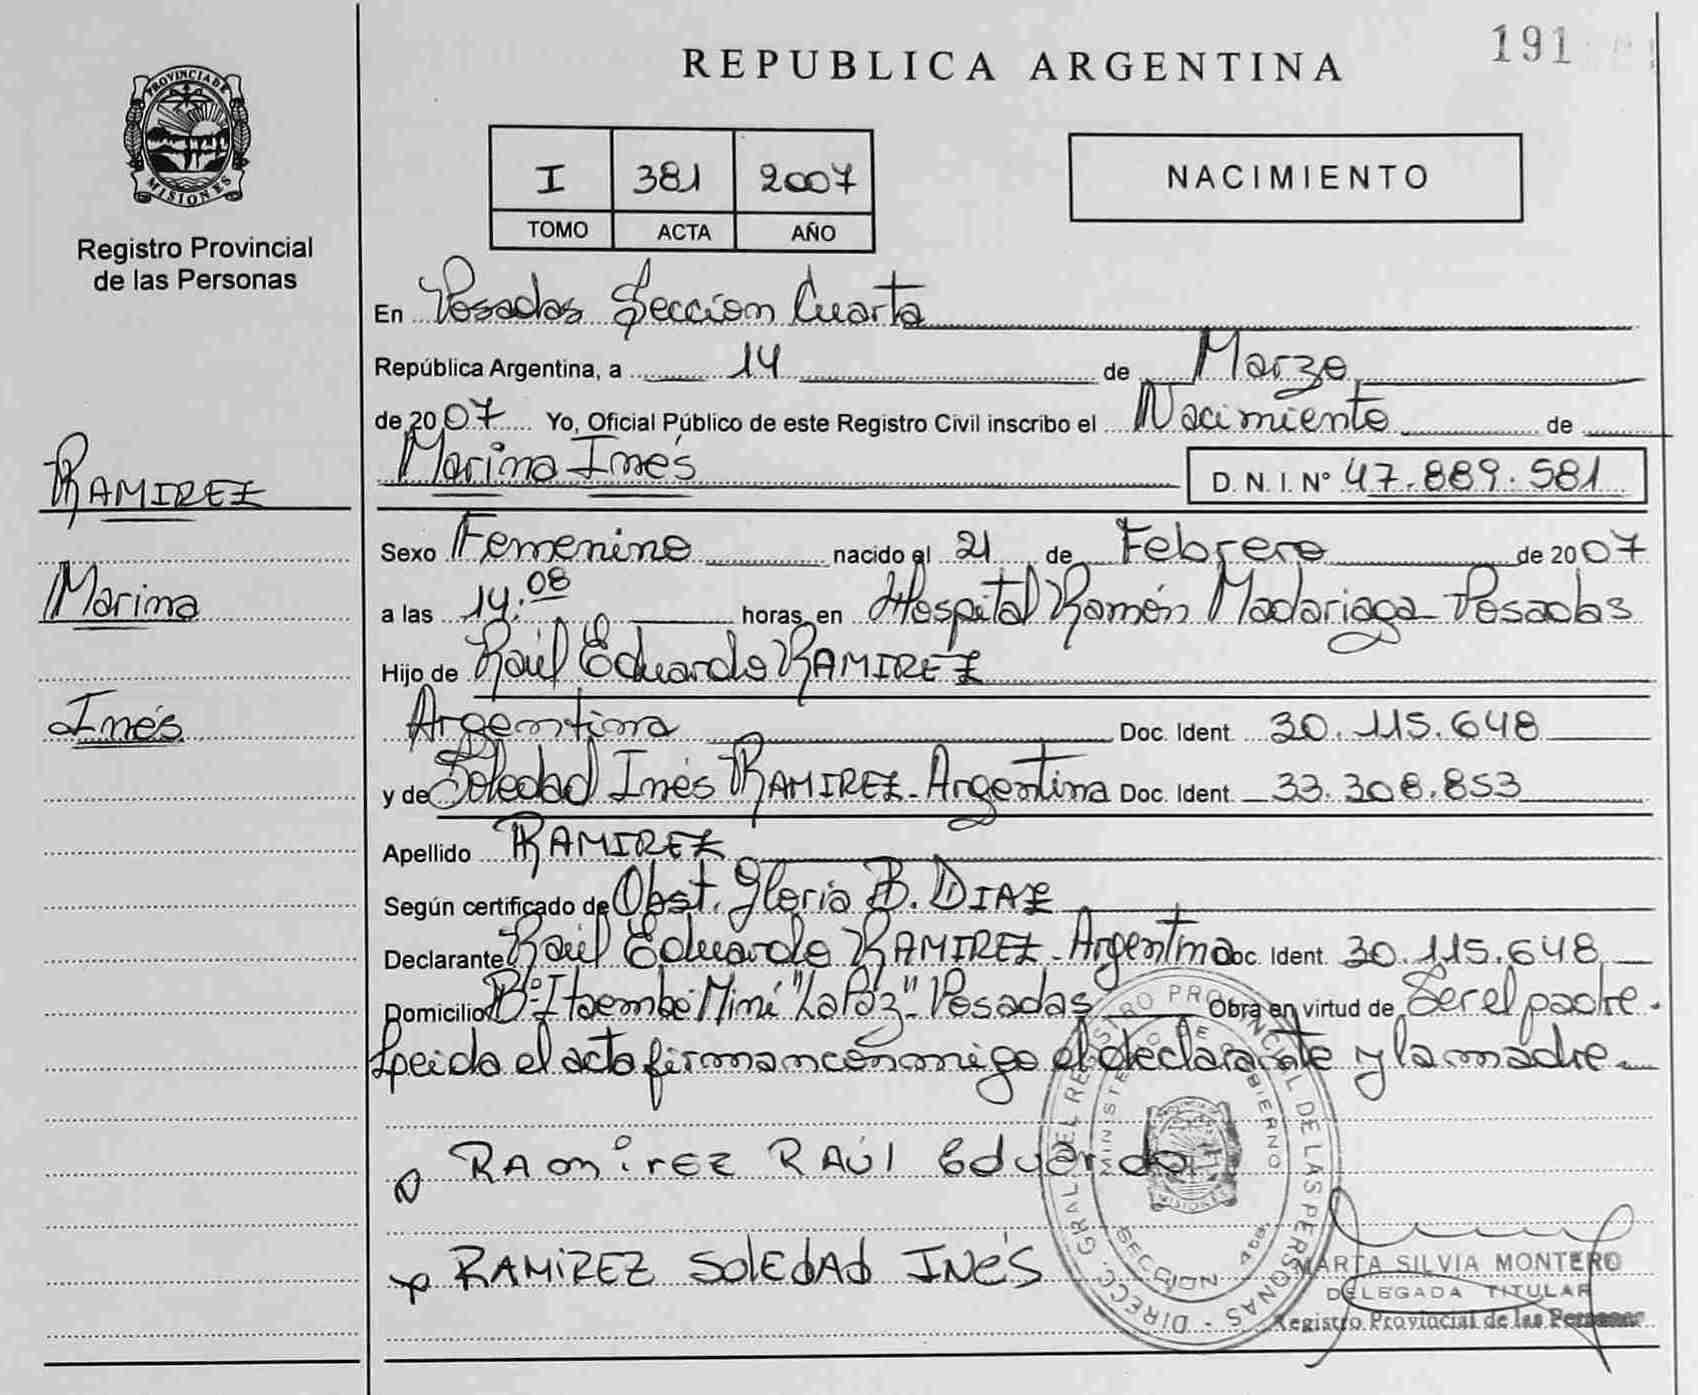 191
REPUBLICA ARGENTINA
PROVINCIA DE
MISIONES
Registro Provincial
de las Personas
I 381 2007
TOMO ACTA AÑO
NACIMIENTO
En Posadas Sección Cuarta
República Argentina, a 14 de Marzo
de 2007 Yo, Oficial Público de este Registro Civil inscribo el Nacimiento de
Marina Inés D. N. I. N° 47.889.581
RAMIREZ
Marina
Inés
Sexo Femenino nacido el 21 de Febrero de 2007
a las 14:08 horas, en Hospital Ramón Madariaga - Posadas
Hijo de Raúl Eduardo RAMIREZ
Argentina Doc. Ident. 30.115.648
y de Soledad Inés RAMIREZ - Argentina Doc. Ident. 33.308.853
Apellido RAMIREZ
Según certificado de Obst. Gloria B. DIAZ
Declarante Raúl Eduardo RAMIREZ - Argentina Doc. Ident. 30.115.648
Domicilio B° Itaembé Miní "La Paz" - Posadas Obra en virtud de Ser el padre.
Leida el acta firman conmigo el declarante y la madre
RAmirEZ RAÚl Eduardo
RAMiREZ SolEdAd INéS
DIRECC. GRAL. DEL REGISTRO PROVINCIAL DE LAS PERSONAS
MINISTERIO DE GOBIERNO
MISIONES
SECCION
MARTA SILVIA MONTERO
DELEGADA TITULAR
Registro Provincial de las Personas